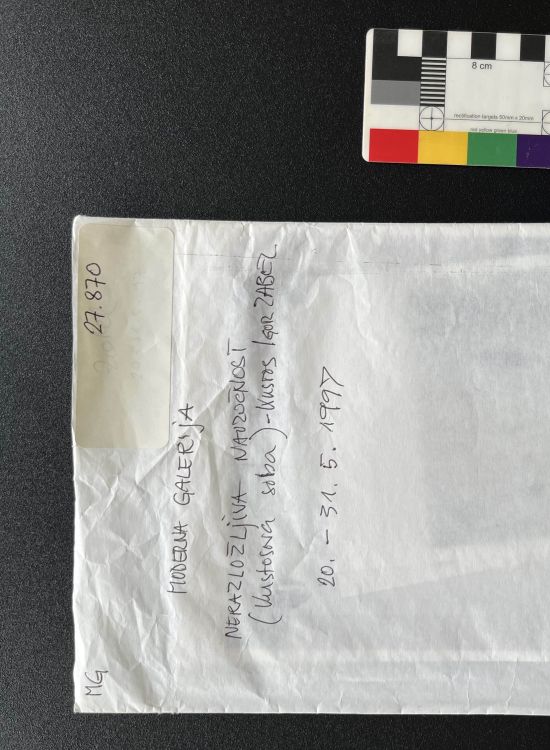 8 cm
rectification targets 50mm x 20mm
red yellow green blue
27.870
MG
MODERNA GALERIJA
NERAZLOŽLJIVA NAVZOČNOST
(Kustosova soba) - kustos IGOR ZABEL
20. - 31. 5. 1997